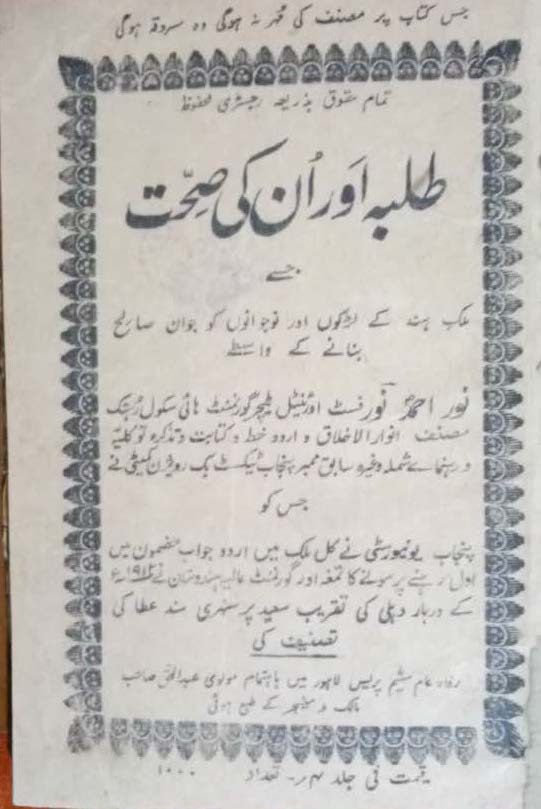 جس کتاب پر مصنف کی مہر نہ ہوگی وہ مسروقہ ہوگی
تمام حقوق بذریعہ رجسٹری محفوظ
طلبہ اور اُن کی صحّت
جسے
ملک ہند کے لڑکوں اور نوجوانوں کو جوان صالح
بنانے کے واسطے
نور احمد نور فسٹ اورینٹل ٹیچر گورنمنٹ ہائی سکول رہتک
مصنف انوار الاخلاق و اردو خط و کتابت و تذکرہ توکلیہ
و رہنمائے شملہ وغیرہ سابق ممبر پنجاب ٹیکسٹ بک رویژن کمیٹی نے
جس کو
پنجاب یونیورسٹی نے کل ملک میں اردو جواب مضمون میں
اول رہنے پر سونے کا تمغہ اور گورنمنٹ عالیہ ہندوستان نے
کے دربار دہلی کی تقریب سعید پر سنہری سند عطا کی
تصنیف کی
رفاہ عام سٹیم پریس لاہور میں باہتمام مولوی عبدالحق صاحب
مالک و منیجر کے طبع ہوئی
قیمت فی جلد تعداد ۱۰۰۰